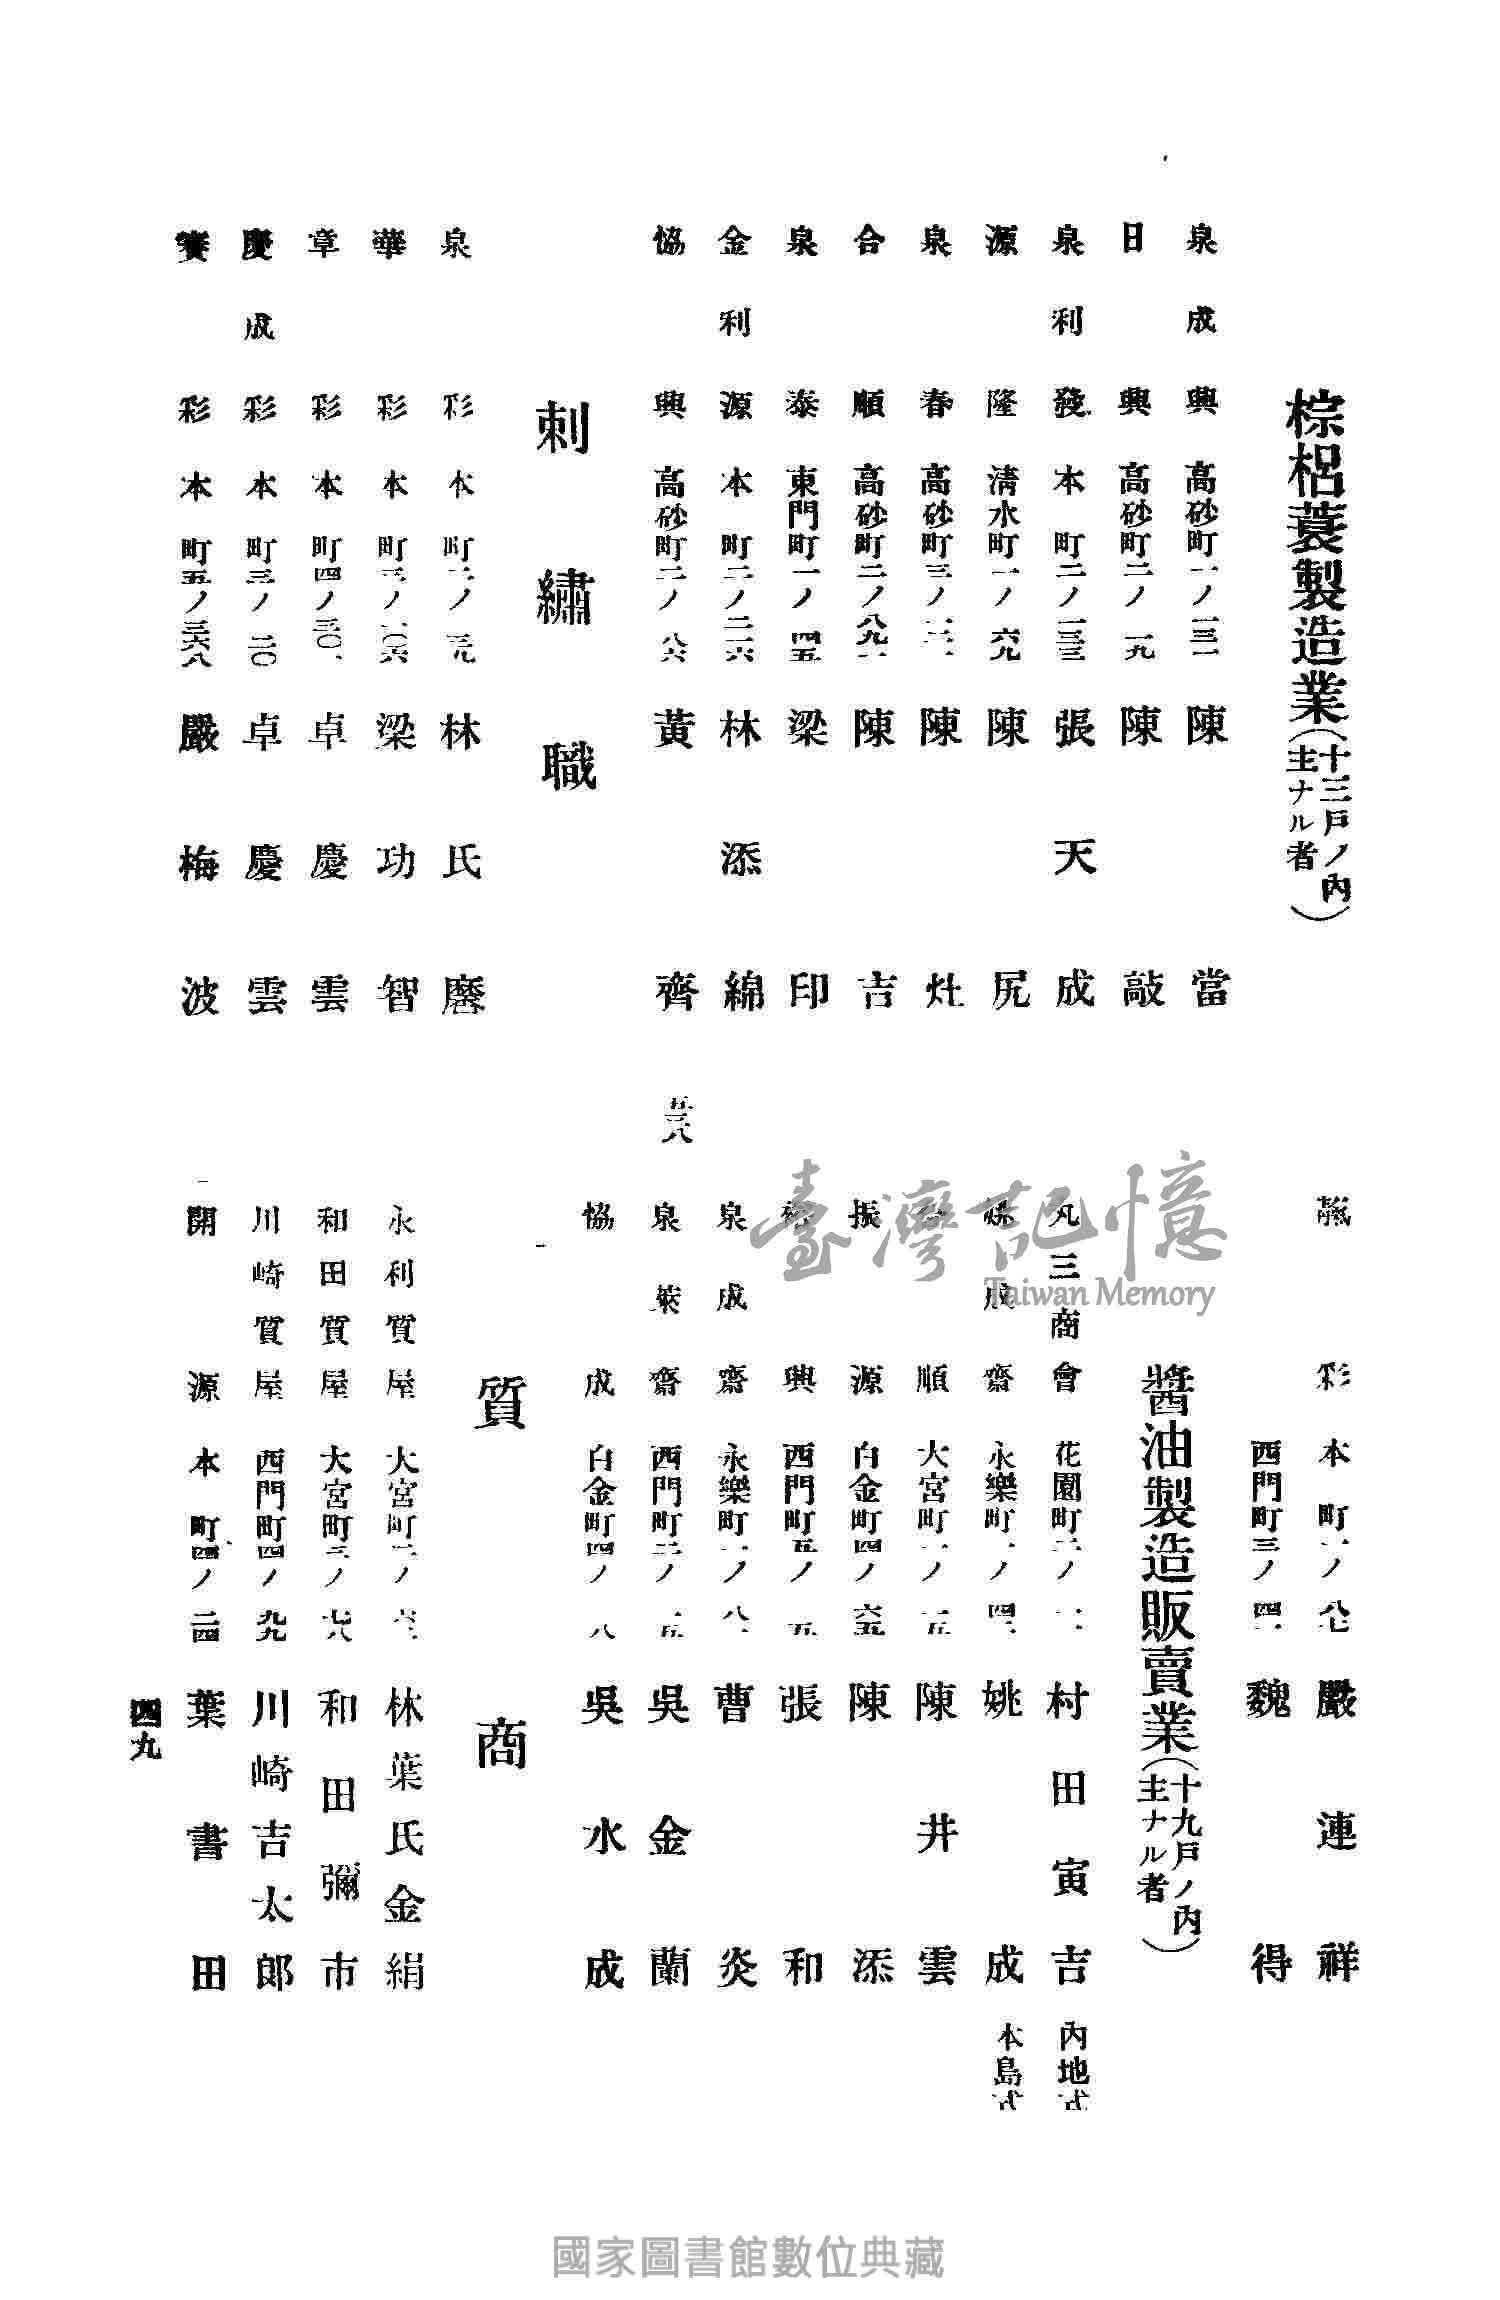 棕梠蓑製造業(十三戸ノ內主ナル者)
泉成興 高砂町一ノ一三一 陳當
日興 高砂町二ノ一九 陳敲
泉利發 本町二ノ一三三 張天成
源隆 淸水町一ノ六九 陳尻
泉春 高砂町三ノ一二一 陳灶
合順 高砂町二ノ八九一 陳吉
泉泰 東門町一ノ四五 梁印
金利源 本町二ノ二一六 林添綿
協興 高砂町二ノ八六 黃齊
刺繡職
泉彩 本町二ノ三九 林氏
華彩 本町三ノ一〇六 梁功智
章彩 本町四ノ三〇一 卓慶雲
慶成彩 本町三ノ二〇 卓慶雲
寶彩 本町五ノ三六八 嚴梅波
彩 本町一ノ八七 嚴連祥
西門町三ノ四一 魏得
醬油製造販賣業(十九戸ノ內主ナル者)
丸三商會 花園町二ノ一一 村田寅吉 內地式
成齋 永樂町一ノ四 姚成 本島式
順 大宮町一ノ一五 陳井雲
振源 白金町四ノ六五 陳添
興 西門町五ノ五 張和
泉成齋 永樂町一ノ八一 曹炎
泉裝齋 西門町二ノ一五 吳金蘭
五三八
協成 白金町四ノ八 吳水成
質商
永利質屋 大宮町二ノ六 林葉氏金絹
和田質屋 大宮町三ノ七八 和田彌市
川崎質屋 西門町四ノ九九 川崎吉太郎
開源 本町四ノ二四 葉書田
四九
臺灣記憶
Taiwan Memory
國家圖書館數位典藏